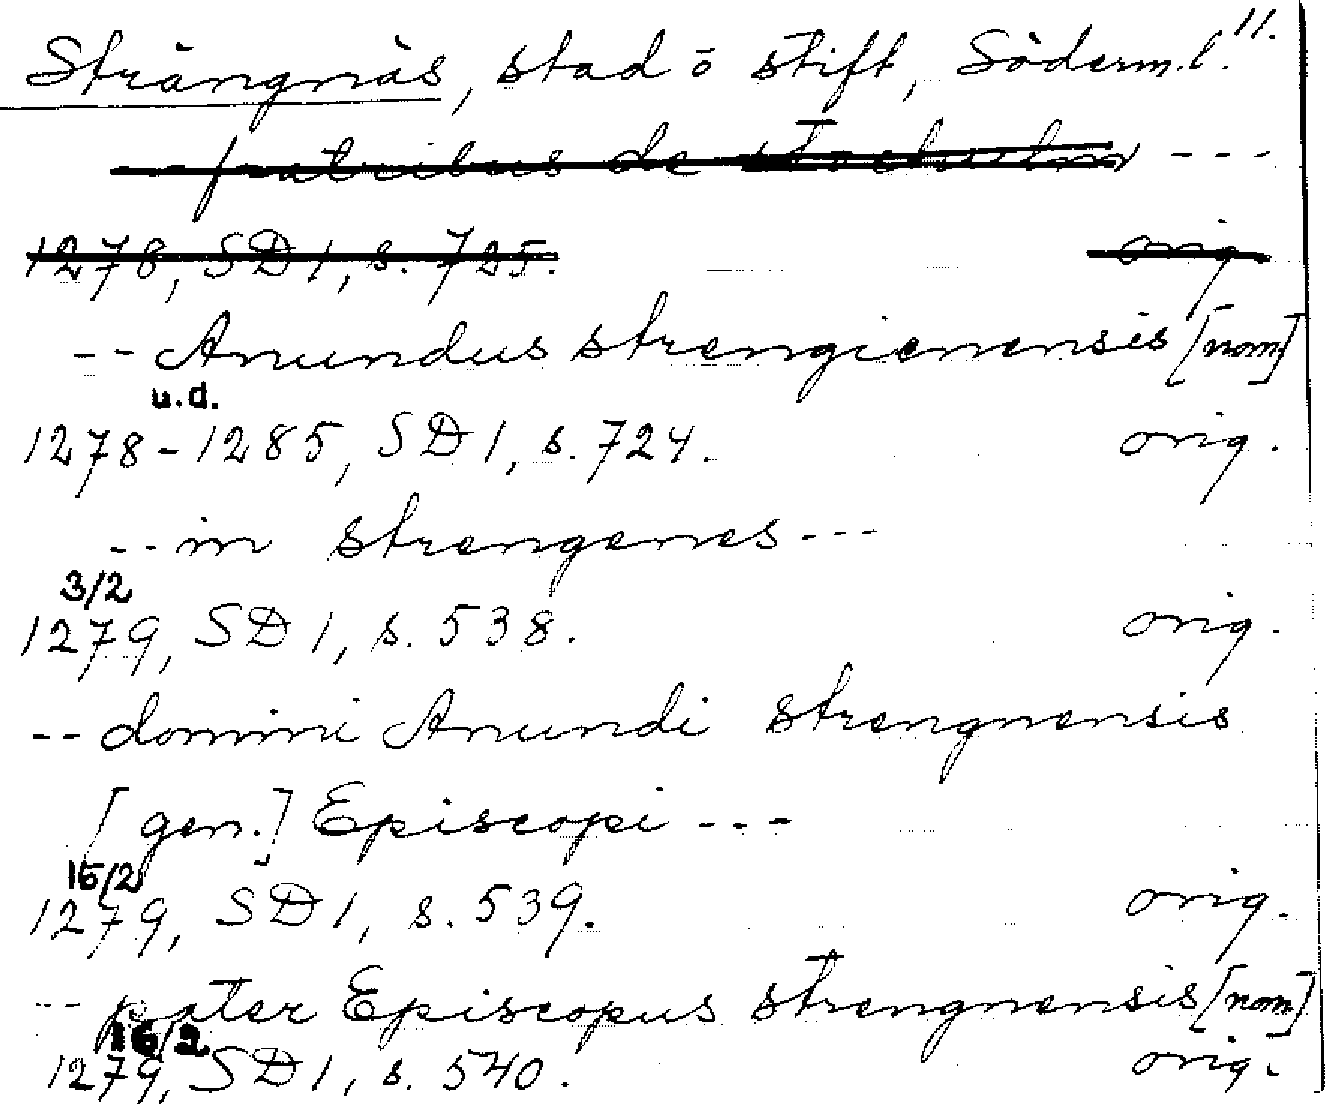 Strängnäs, stad o stift, Söderm.l. 11.
fratribus de stocholm ---
1278, SD 1, s. 725. orig.
-- Anundus strengienensis [nom]
u.d.
1278-1285, SD 1, s. 724. orig.
-- in strengenes ---
3/2
1279, SD 1, s. 538. orig.
-- domini Anundi strengnensis
[gen.] Episcopi ---
15/2
1279, SD 1, s. 539. orig.
-- pater Episcopus strengnensis [nom]
16/2
1279, SD 1, s. 540. orig.